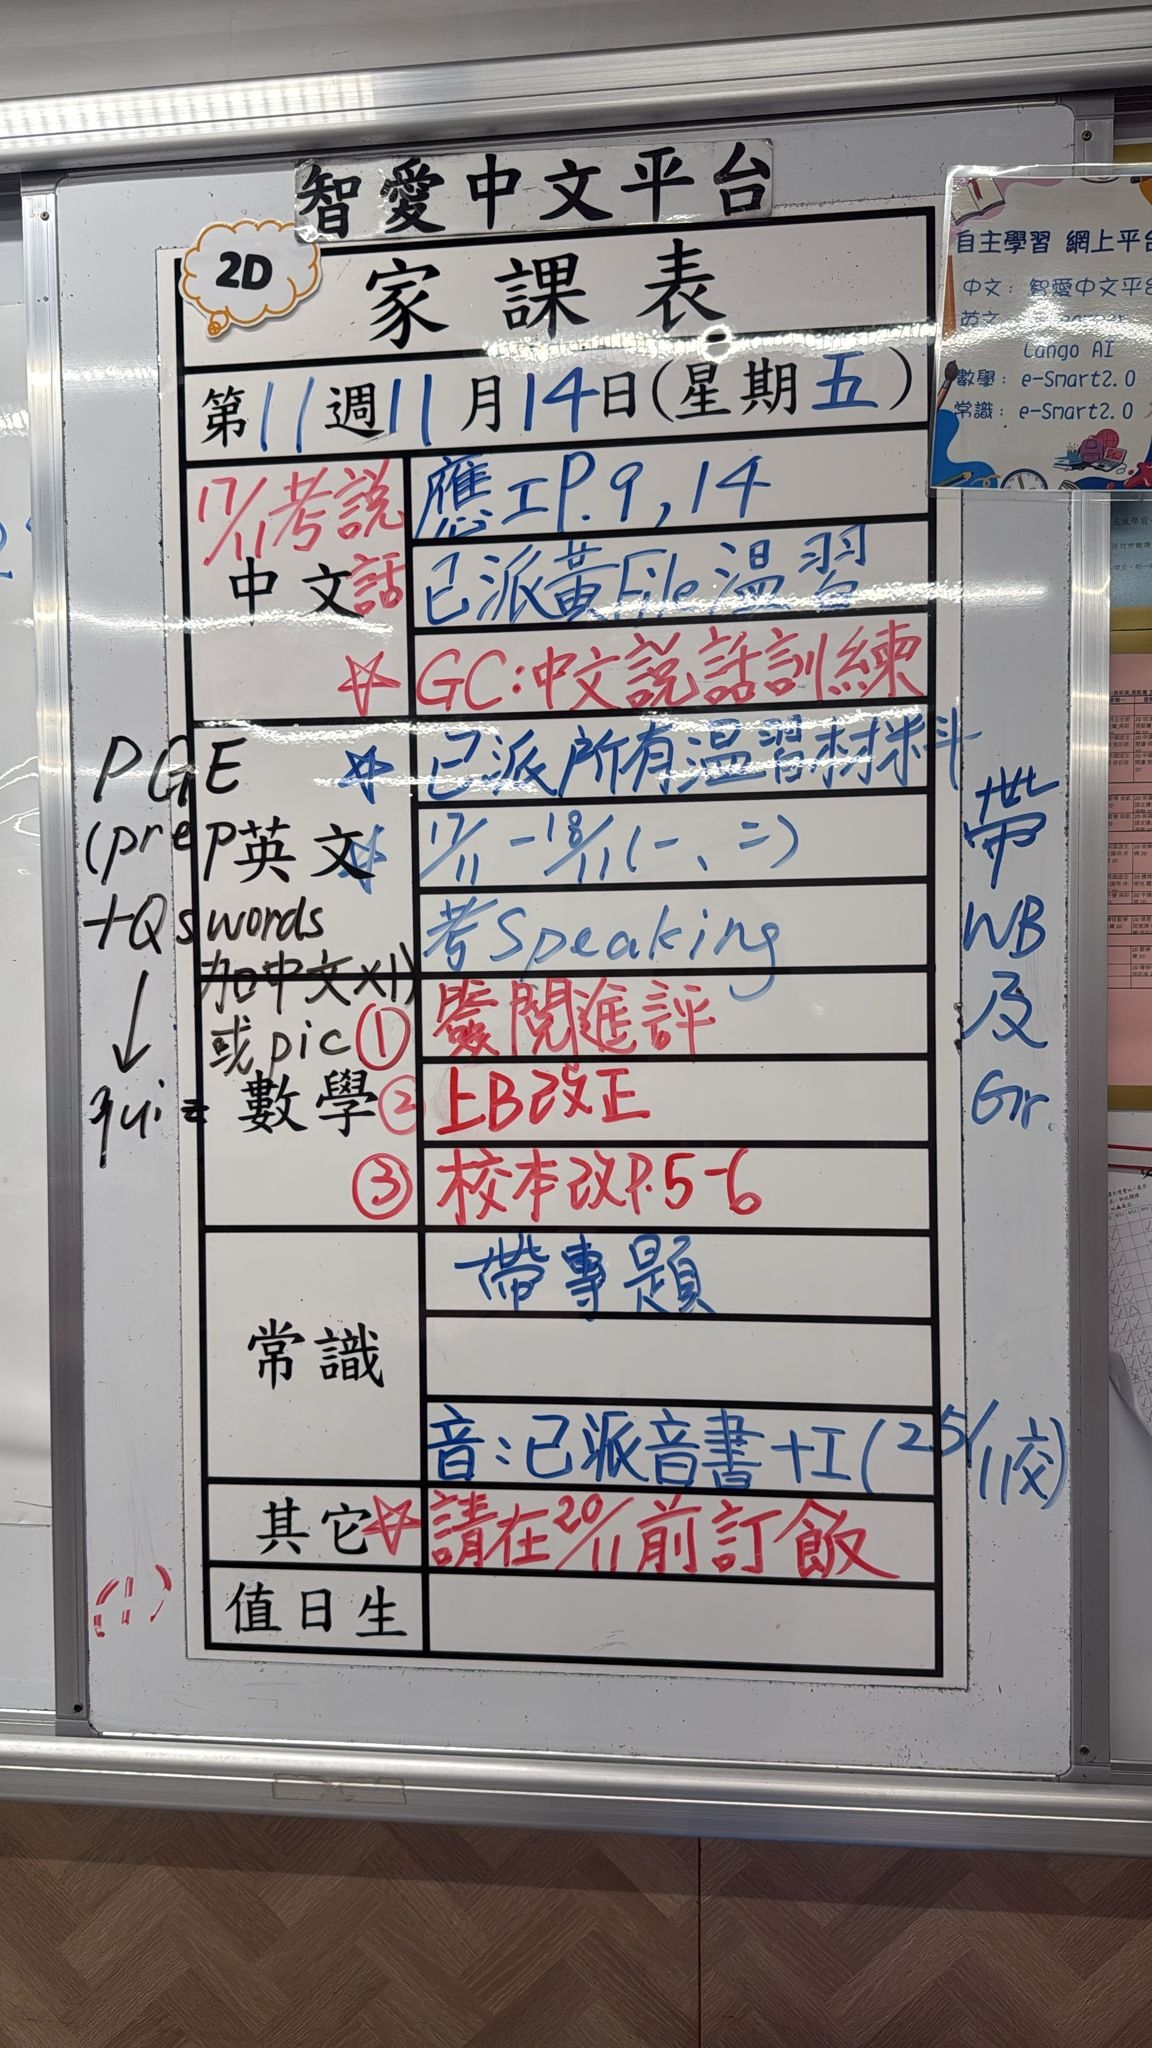 智愛中文平台
2D
家課表
第11週11月14日(星期五)
17/11考說話
中文
應工P.9,14
已派黃File溫習
☆ GC:中文說話訓練
英文
☆ 已派所有溫習材料
☆ 17/11-18/11(一、二)
考Speaking
PGE
(prep
+Qswords
加中文x1)
或pic
↓
qui
帶
WB
及
Gr.
數學
① 簽閱進評
② 上B改正
③ 校本改P.5-6
常識
帶專題
音:已派音書+工(25/11交)
其它
☆ 請在20/11前訂飯
值日生
自主學習 網上平台
中文: 智愛中文平台
英文:
Lango AI
數學: e-Smart2.0
常識: e-Smart2.0